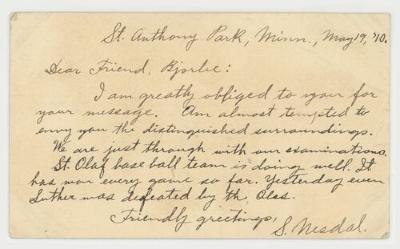 St. Anthony Park, Minn., May 19, '10.
Dear Friend, Bjorlie:
I am greatly obliged to your for
your message. Am almost tempted to
envy you the distinguished surroundings.
We are just through with our examinations.
St. Olaf base ball team is doing well. It
has won every game so far. Yesterday even
Luther was defeated by th. Olas.
Friendly greetings,
S. Nesdal.